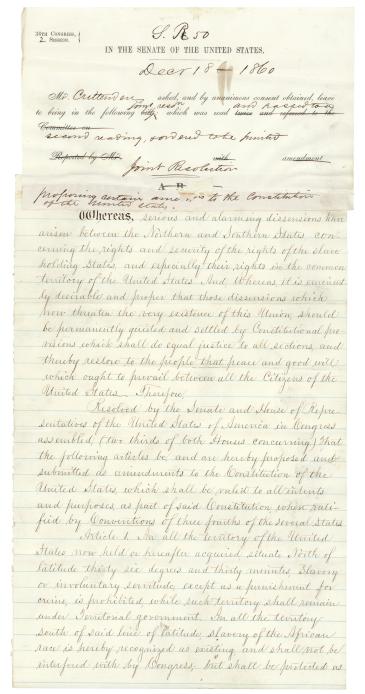 S. R 50
36TH CONGRESS,
2. SESSION.
IN THE SENATE OF THE UNITED STATES.
Decr 18 1860
Mr. Crittenden asked, and by unanimous consent obtained, leave
joint resn. and passed to a
to bring in the following bill; which was read twice and referred to the
Committee on
second reading, & ordered to be printed
Reported by Mr. with amendment
Joint Resolution
A B
proposing certain to the Constitution
of the United States.
Whereas, serious and alarming dissensions have
arisen between the Northern and Southern States, con-
cerning the rights and security of the rights of the slave
holding States, and especially their rights in the common
territory of the United States. And Whereas, it is eminent-
ly desirable and proper that those dissensions which
now threaten the very existence of this Union, should
be permanently quieted and settled by Constitutional pro-
visions which shall do equal justice to all sections, and
thereby restore to the people that peace and good will
which ought to prevail between all the Citizens of the
United States. Therefore,
Resolved by the Senate and House of Repre-
sentatives of the United States of America in Congress
assembled, (two thirds of both Houses concurring) That
the following articles be, and are hereby proposed and
submitted as amendments to the Constitution of the
United States, which shall be valid to all intents
and purposes, as part of said Constitution, when rati-
fied by Conventions of three fourths of the several States
Article 1. In all the territory of the United
States now held, or hereafter acquired, situate North of
latitude thirty six degrees and thirty minutes, Slavery
or involuntary servitude, except as a punishment for
crime, is prohibited, while such territory shall remain
under Territorial government. In all the territory
south of said line of latitude, slavery of the African
race is hereby recognized as existing, and shall not be
interfered with by Congress, but shall be protected as